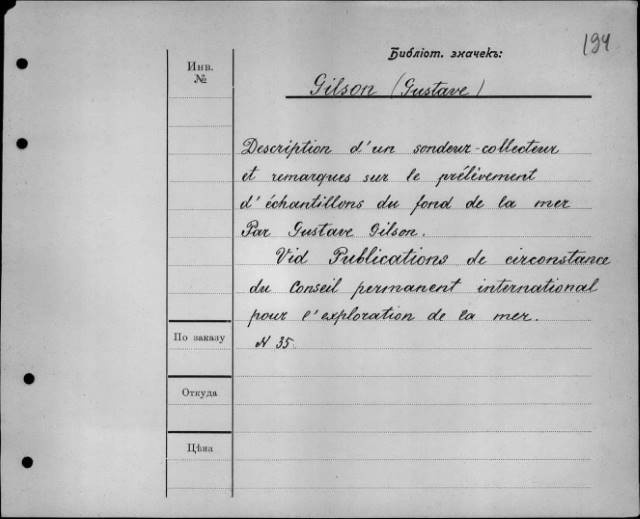 Библіот. значекъ:
194
Инв.
№
Gilson (Gustave)
Description d'un sondeur-collecteur
et remarques sur le prélèvement
d'échantillons du fond de la mer
Par Gustave Gilson.
Vid Publications de circonstance
du Conseil permanent international
pour l'exploration de la mer.
По заказу
N 35.
Откуда
Цѣна